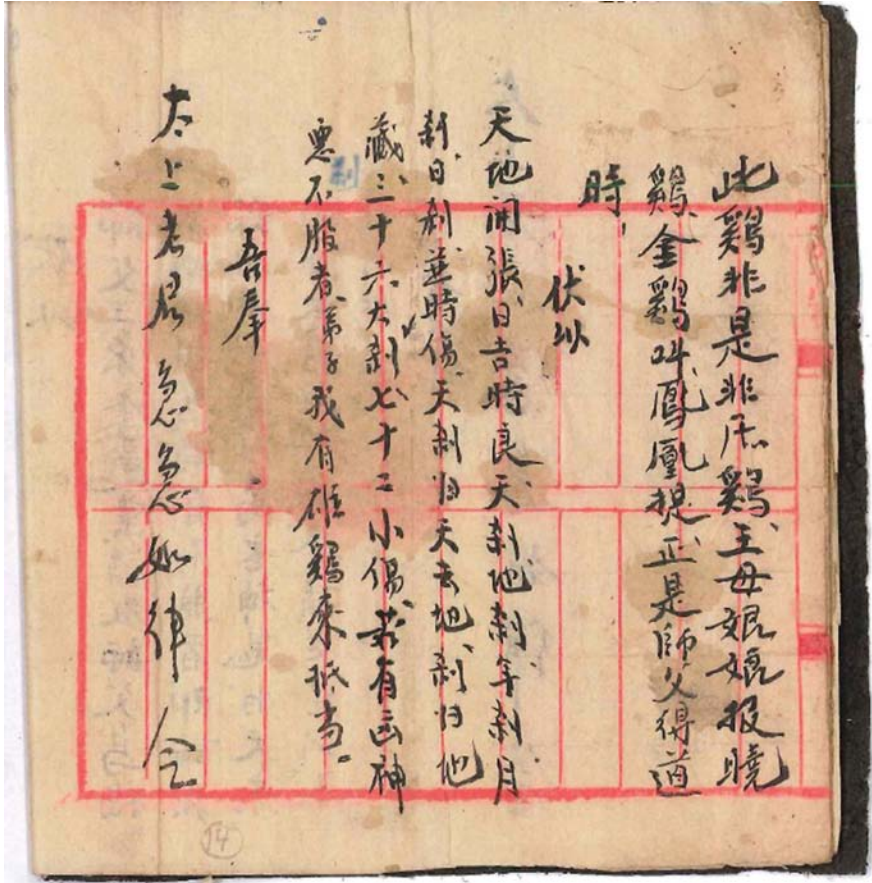 此鷄非是非凡鷄、王母娘娘报曉
鷄、金鷄叫鳳凰提、正是師父得道
時、
伏以
天地開張、日吉時良、天刹地刹年刹月
刹、日刹並時傷、天刹归天去地、刹归地
藏、三十六大刹、七十二小傷、若有凶神
惡不服者、弟子我有雄鷄來抵当。
刹
吾奉
太上老君急急如律令
14